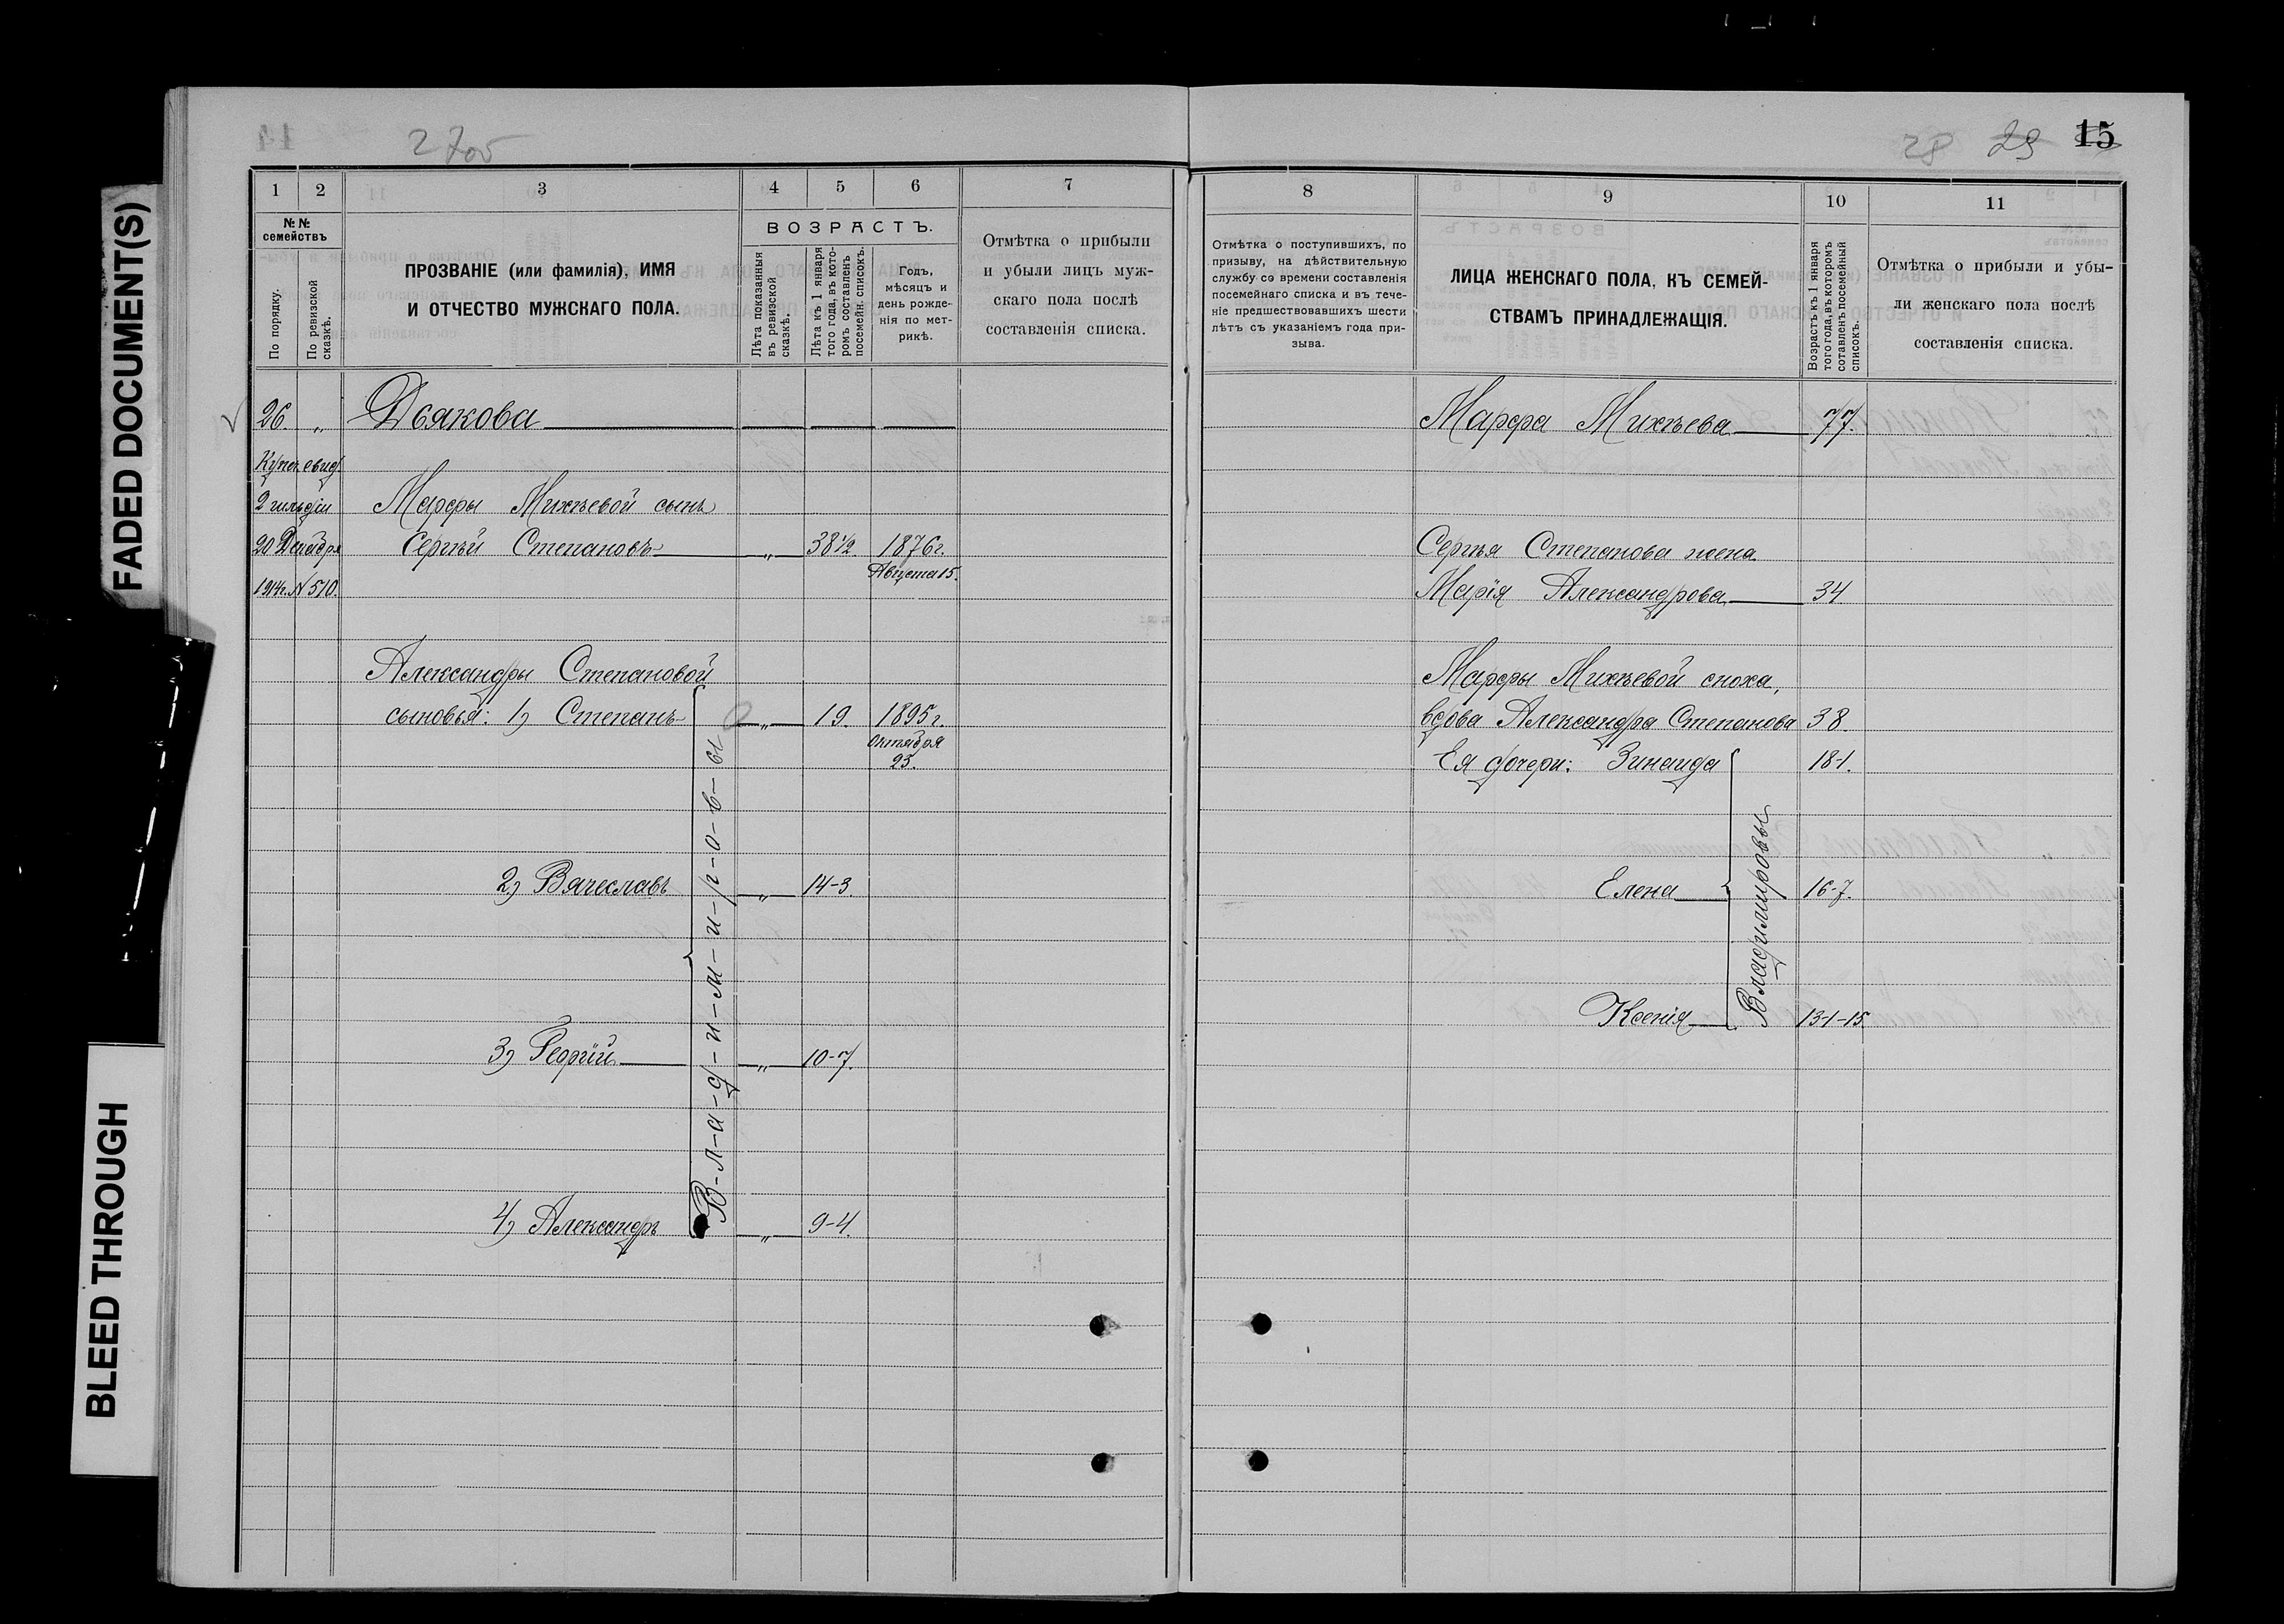 FADED DOCUMENT(S)
BLEED THROUGH
28 29 15
1 2 3 4 5 6 7
№ № семействъ
По порядку.
По ревизской сказкѣ.
ПРОЗВАНІЕ (или фамилія), ИМЯ
И ОТЧЕСТВО МУЖСКАГО ПОЛА.
ВОЗРАСТЪ.
Лѣта показанныя
въ ревизской
сказкѣ.
Лѣта къ 1 января
того года, въ кото-
ромъ составленъ
посемейн. списокъ.
Годъ,
мѣсяцъ и
день рожде-
нія по мет-
рикѣ.
Отмѣтка о прибыли
и убыли лицъ муж-
скаго пола послѣ
составленія списка.
26. „ Дьякова
Купеч. свид.
2 гильдіи Марфы Михѣевой сынъ
20 Декабря Сергѣй Степановъ „ 38½ 1876 г.
Августа 15.
1914 г. № 510.
Александры Степановой
сыновья: 1) Степанъ „ 19. 1895 г.
Октября
25.
2) Вячеславъ „ 14-3
3) Георгій „ 10-7.
4) Александръ „ 9-4.
В-л-а-д-и-м-и-р-о-в-ы
8 9 10 11
Отмѣтка о поступившихъ, по
призыву, на дѣйствительную
службу со времени составленія
посемейнаго списка и въ тече-
ніе предшествовавшихъ шести
лѣтъ съ указаніемъ года при-
зыва.
ЛИЦА ЖЕНСКАГО ПОЛА, КЪ СЕМЕЙ-
СТВАМЪ ПРИНАДЛЕЖАЩІЯ.
Возрастъ къ 1 января
того года, въ которомъ
сотавленъ посемейный
списокъ.
Отмѣтка о прибыли и убы-
ли женскаго пола послѣ
составленія списка.
Марфа Михѣева 77.
Сергѣя Степанова жена
Марія Александрова 34
Марфы Михѣевой сноха,
вдова Александра Степанова 38.
Ея дочери: Зинаида 18-1.
Елена 16-7.
Ксенія 13-1-15
Владимировы